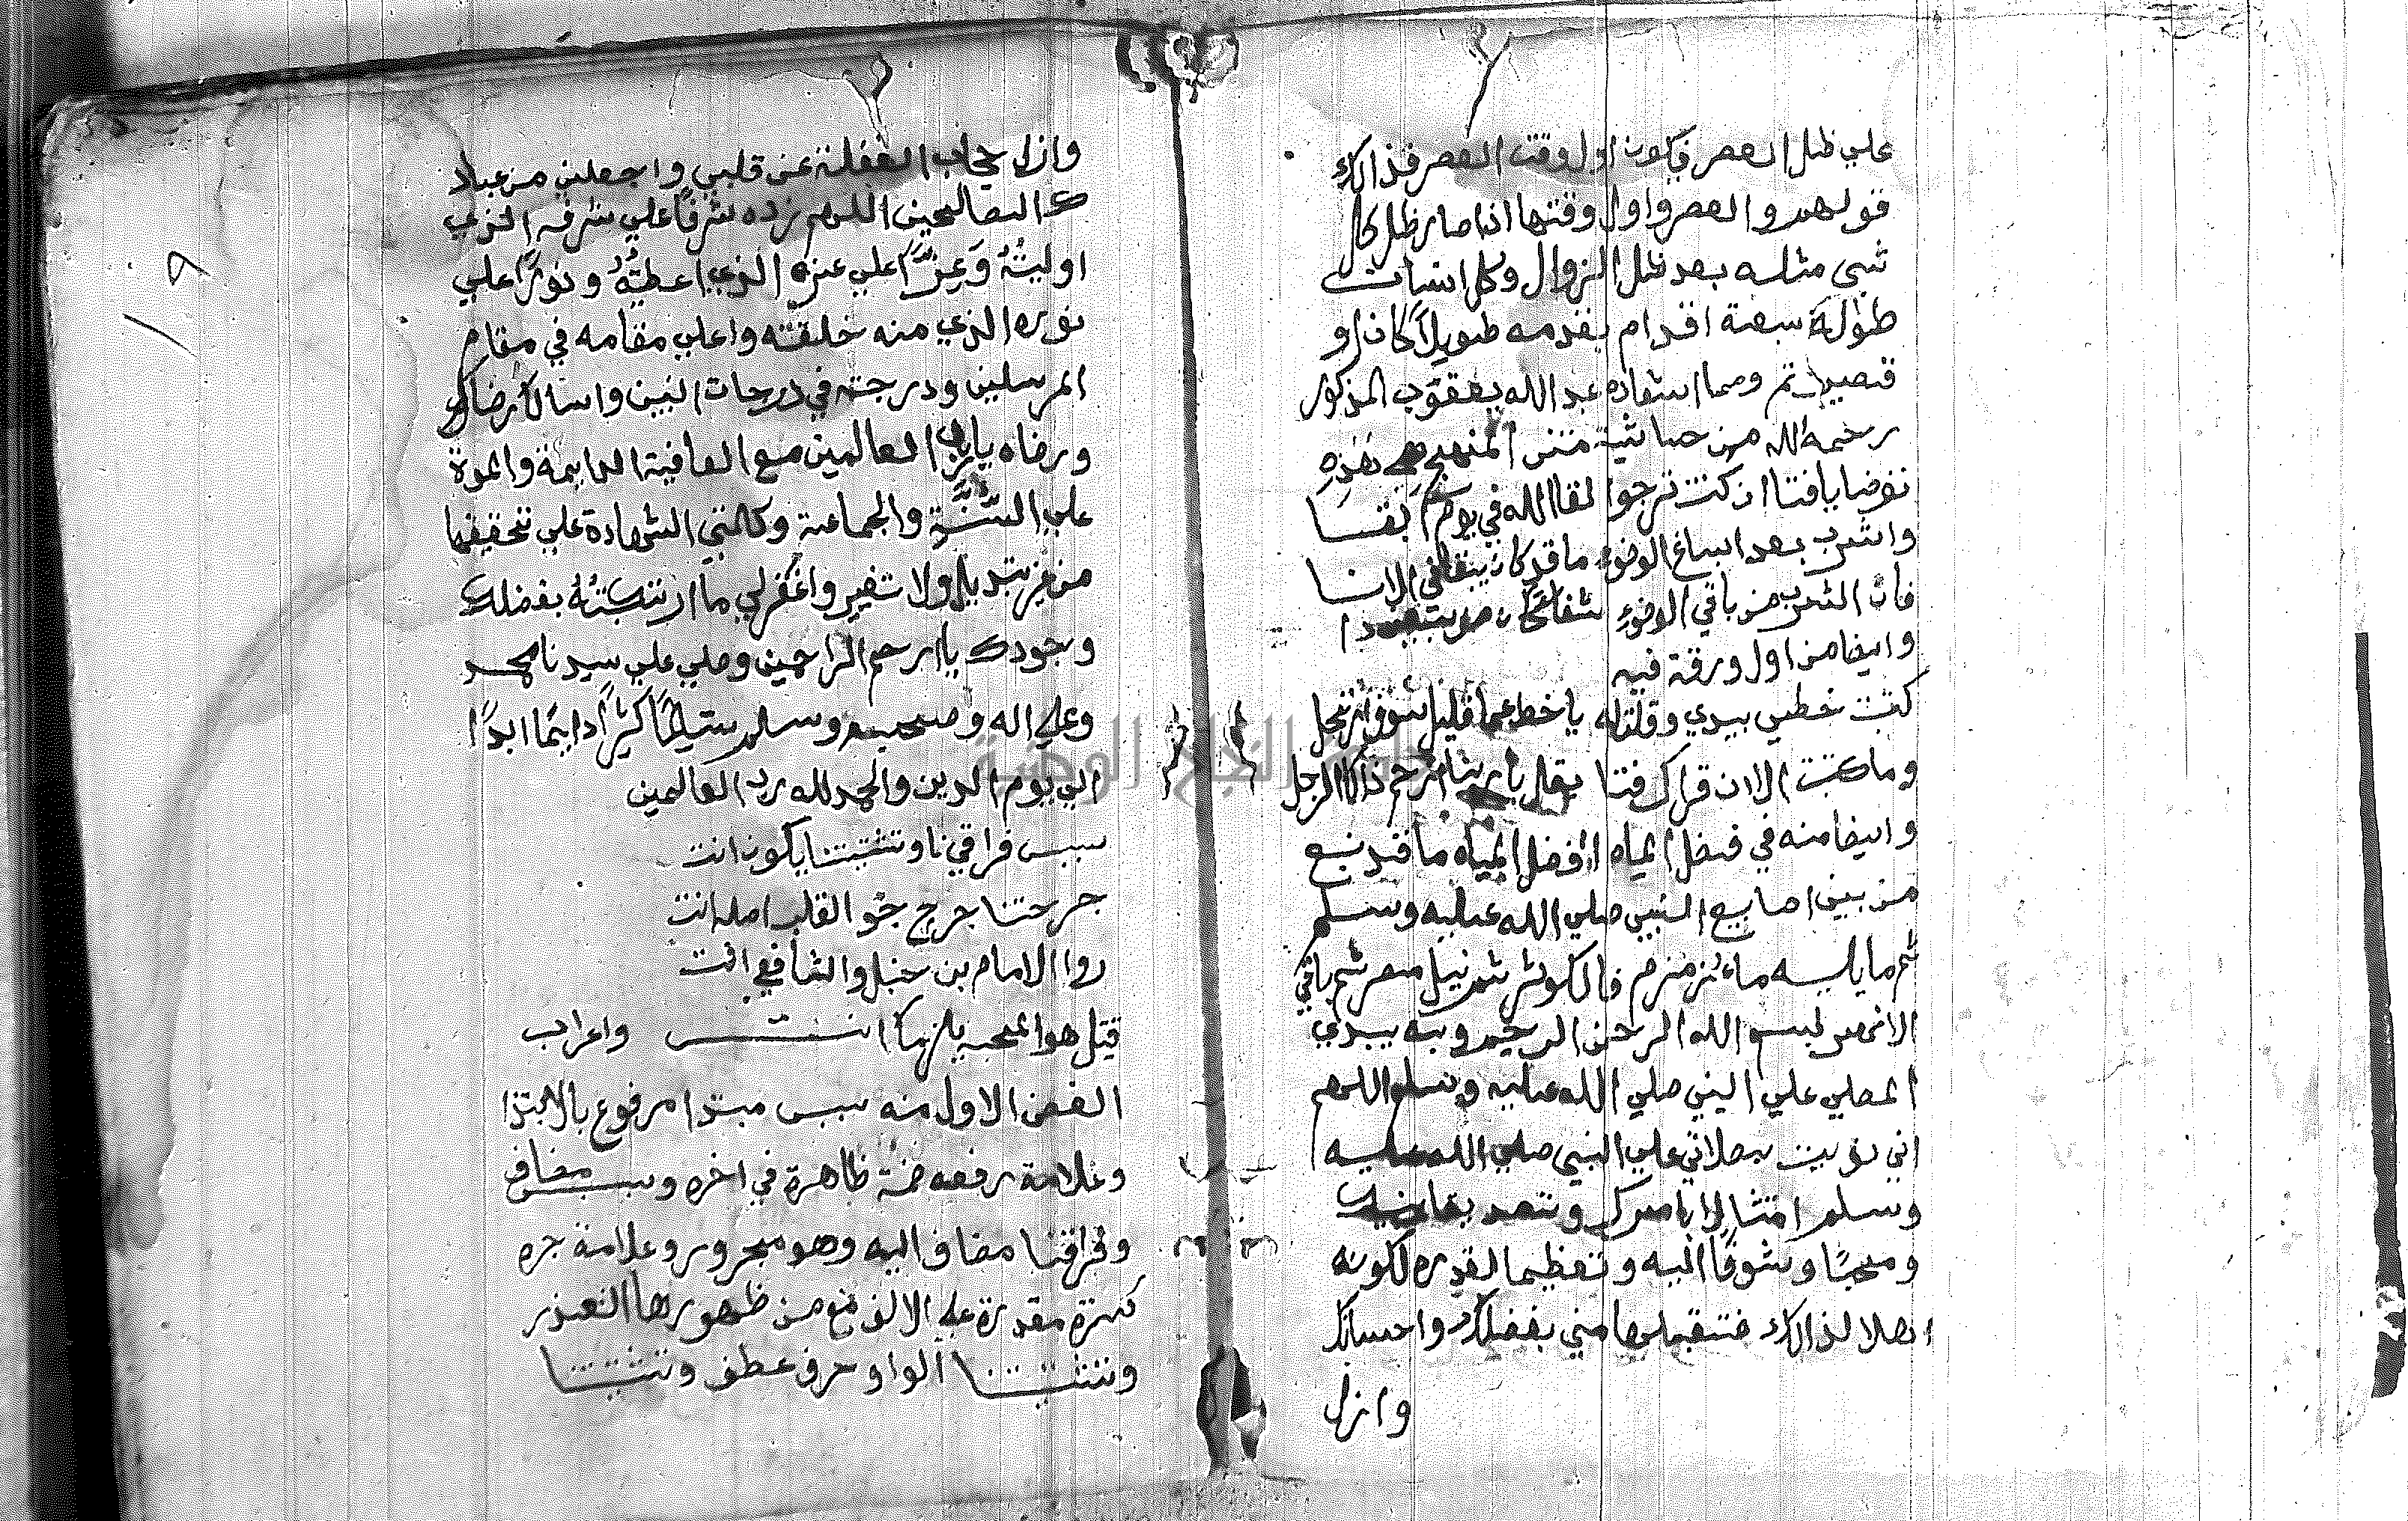 علي ظل العصر فيكون اول وقت العصر فذالك
قولهم والعصر واول وقتها اذا صار ظل كل
شي مثله بعد ظل الزوال وكل انسان
طوله سبعة اقدام بقدمه طويلاً كان او
قصيرا تم ومما استفاده عبد الله يعقوب المذكور
رحمه الله من حاشية متن المنهج هذه
توضا يا فتا ان كنت ترجوا لقا الله في يوم البقا
واشرب بعد اسباغ الوضوء ما قد كان يبقا في الانا
فان الشرب من باقي الوضوء شفا
وايضا من اول ورقة فيه
كتبت خطي بيدي وقلتله يا خط عما قليل سوف ترتحل
وما كتبت الا ان قراك فتا يقل يا ربنا ارحم ذاك الرجل
وايضا منه في فضل المياه افضل المياه ما قد نبع
من بين اصابع النبي صلي الله عليه وسلم
ثم ما يليه ماء زمزم فالكوثر ثم نيل مصر ثم باقي
الانهر بسم الله الرحمن الرحيم وبه يبدي
المصلي علي النبي صلي الله عليه وسلم اللهم
اني نويت بصلاتي علي النبي صلي الله عليه
وسلم امتثالا بامرك وتصديقا
ومحبتا وشوقًا اليه وتعظيما لقدره لكونه
اهلا لذالك فتقبلها مني بفضلك واحسانك
وازل
وازل حجاب الغفلة عن قلبي واجعلني من عباد
ك الصالحين اللهم زده شرفًا علي شرفه الذي
اوليتُهُ وَعِزًّا علي عزه الذي اعطيتُهُ ونورًا علي
نوره الذي منه خلقته واعلي مقامه في مقام
المرسلين ودرجته في درجات النبين واسالك رضاك
ورضاه يا رب العالمين مع العافية الدايمة والموة
علي السُّنَّةِ والجماعة وكلمتي الشهادة علي تحقيقها
من غير تبديل ولا تغير واغفرلي ما ارتكبتُهُ بفضلك
وجودك يا ارحم الراحمين وصلي علي سيدنا محمد
وعلي اله وصحبه وسلم تسليمًا كثيرًا دايمًا ابدًا
الي يوم الدين والحمد لله رب العالمين
سبب فراقينا وتشتيتنا يكون انت
جرحتنا جرح جو القلب اصله انت
روا الامام بن حنبل والشافعي انت
قيل هوا المحبه يلزمك انت واعراب
الغصن الاول منه سبب مبتدا مرفوع بالابتدا
وعلامة رفعه ضمة ظاهرة في اخره وسبب مضاف
وفراقنا مضاف اليه وهو مجرور وعلامة جره
كسرة مقدرة علي الالف منع من ظهورها التعذر
وتشتتنا الواو حرف عطف وتشتتنا